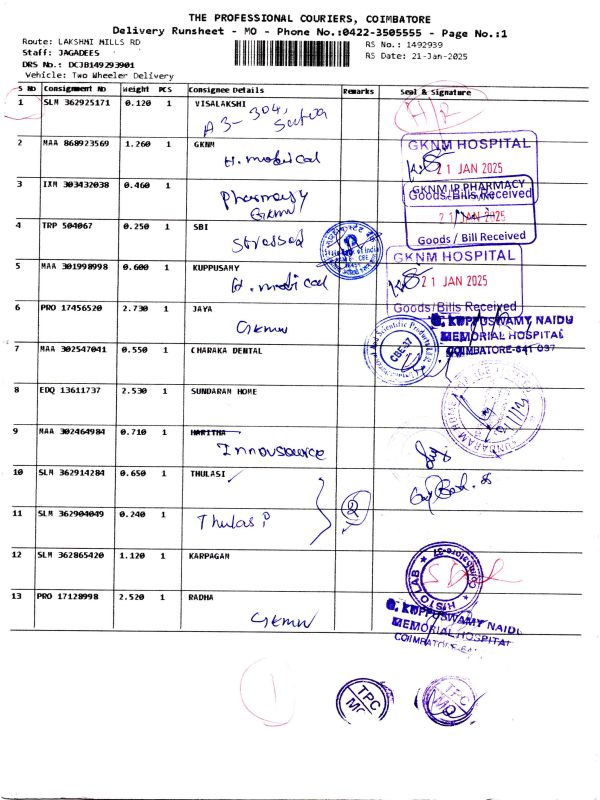 THE PROFESSIONAL COURIERS, COIMBATORE
Delivery Runsheet - MO - Phone No.:0422-3505555 - Page No.:1
Route: LAKSHMI MILLS RD
RS No.: 1492939
Staff: JAGADEES
RS Date: 21-Jan-2025
DRS No.: DCJB149293901
Vehicle: Two Wheeler Delivery
S No Consignment No Weight PCS Consignee Details Remarks Seal & Signature
1 SLM 362925171 0.120 1 VISALAKSHI
A3-304,
2 MAA 868923569 1.260 1 GKNM
H. medical
GKNM HOSPITAL
21 JAN 2025
Goods/Bills Received
3 IXM 303432038 0.460 1
Pharmacy
GKNM
GKNM IP PHARMACY
21 JAN 2025
Goods / Bill Received
4 TRP 504067 0.250 1 SBI
Stressed
5 MAA 301998998 0.600 1 KUPPUSAMY
H. medical
GKNM HOSPITAL
21 JAN 2025
Goods/Bills Received
6 PRO 17456520 2.730 1 JAYA
GKNM
G. KUPPUSWAMY NAIDU
MEMORIAL HOSPITAL
COIMBATORE-641 037
7 MAA 302547041 0.550 1 CHARAKA DENTAL
CBE-37
8 EDQ 13611737 2.530 1 SUNDARAM HOME
SUNDARAM HOME
9 MAA 302464984 0.710 1 HARITHA
Innovsource
10 SLM 362914284 0.650 1 THULASI
11 SLM 362904049 0.240 1
Thulasi
2
12 SLM 362865420 1.120 1 KARPAGAM
HISTO LAB
Coimbatore-37
13 PRO 17128998 2.520 1 RADHA
GKNM
G. KUPPUSWAMY NAIDU
MEMORIAL HOSPITAL
TPC
MO
TPC
MO